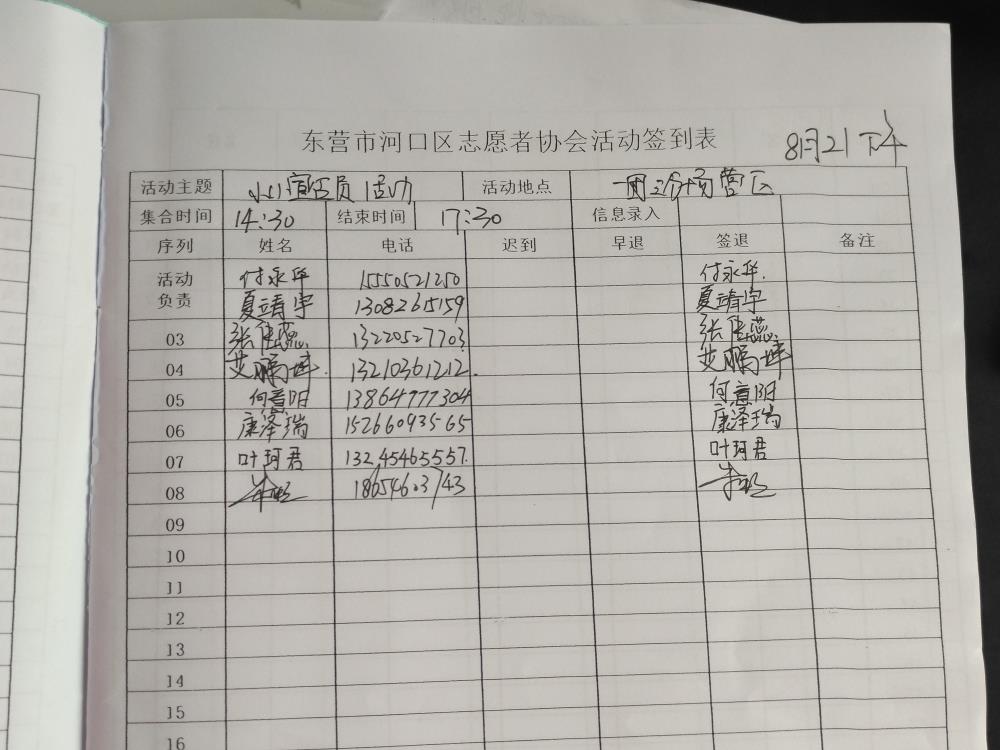 东营市河口区志愿者协会活动签到表
8月21下午
活动主题 活动 活动地点 营区
集合时间 14:30 结束时间 17:30 信息录入
序列 姓名 电话 迟到 早退 签退 备注
活动 付永华 15550521250 付永华.
负责 夏靖宇 13082615159 夏靖宇
03 张佳蕊 13220527703 张佳蕊
04 艾鹏坤. 13210361212. 艾鹏坤
05 何意阳 13864777304 何意阳
06 康泽瑞 15266093565 康泽瑞
07 叶珂君 13245465557. 叶珂君
08 18654603743
09
10
11
12
13
14
15
16